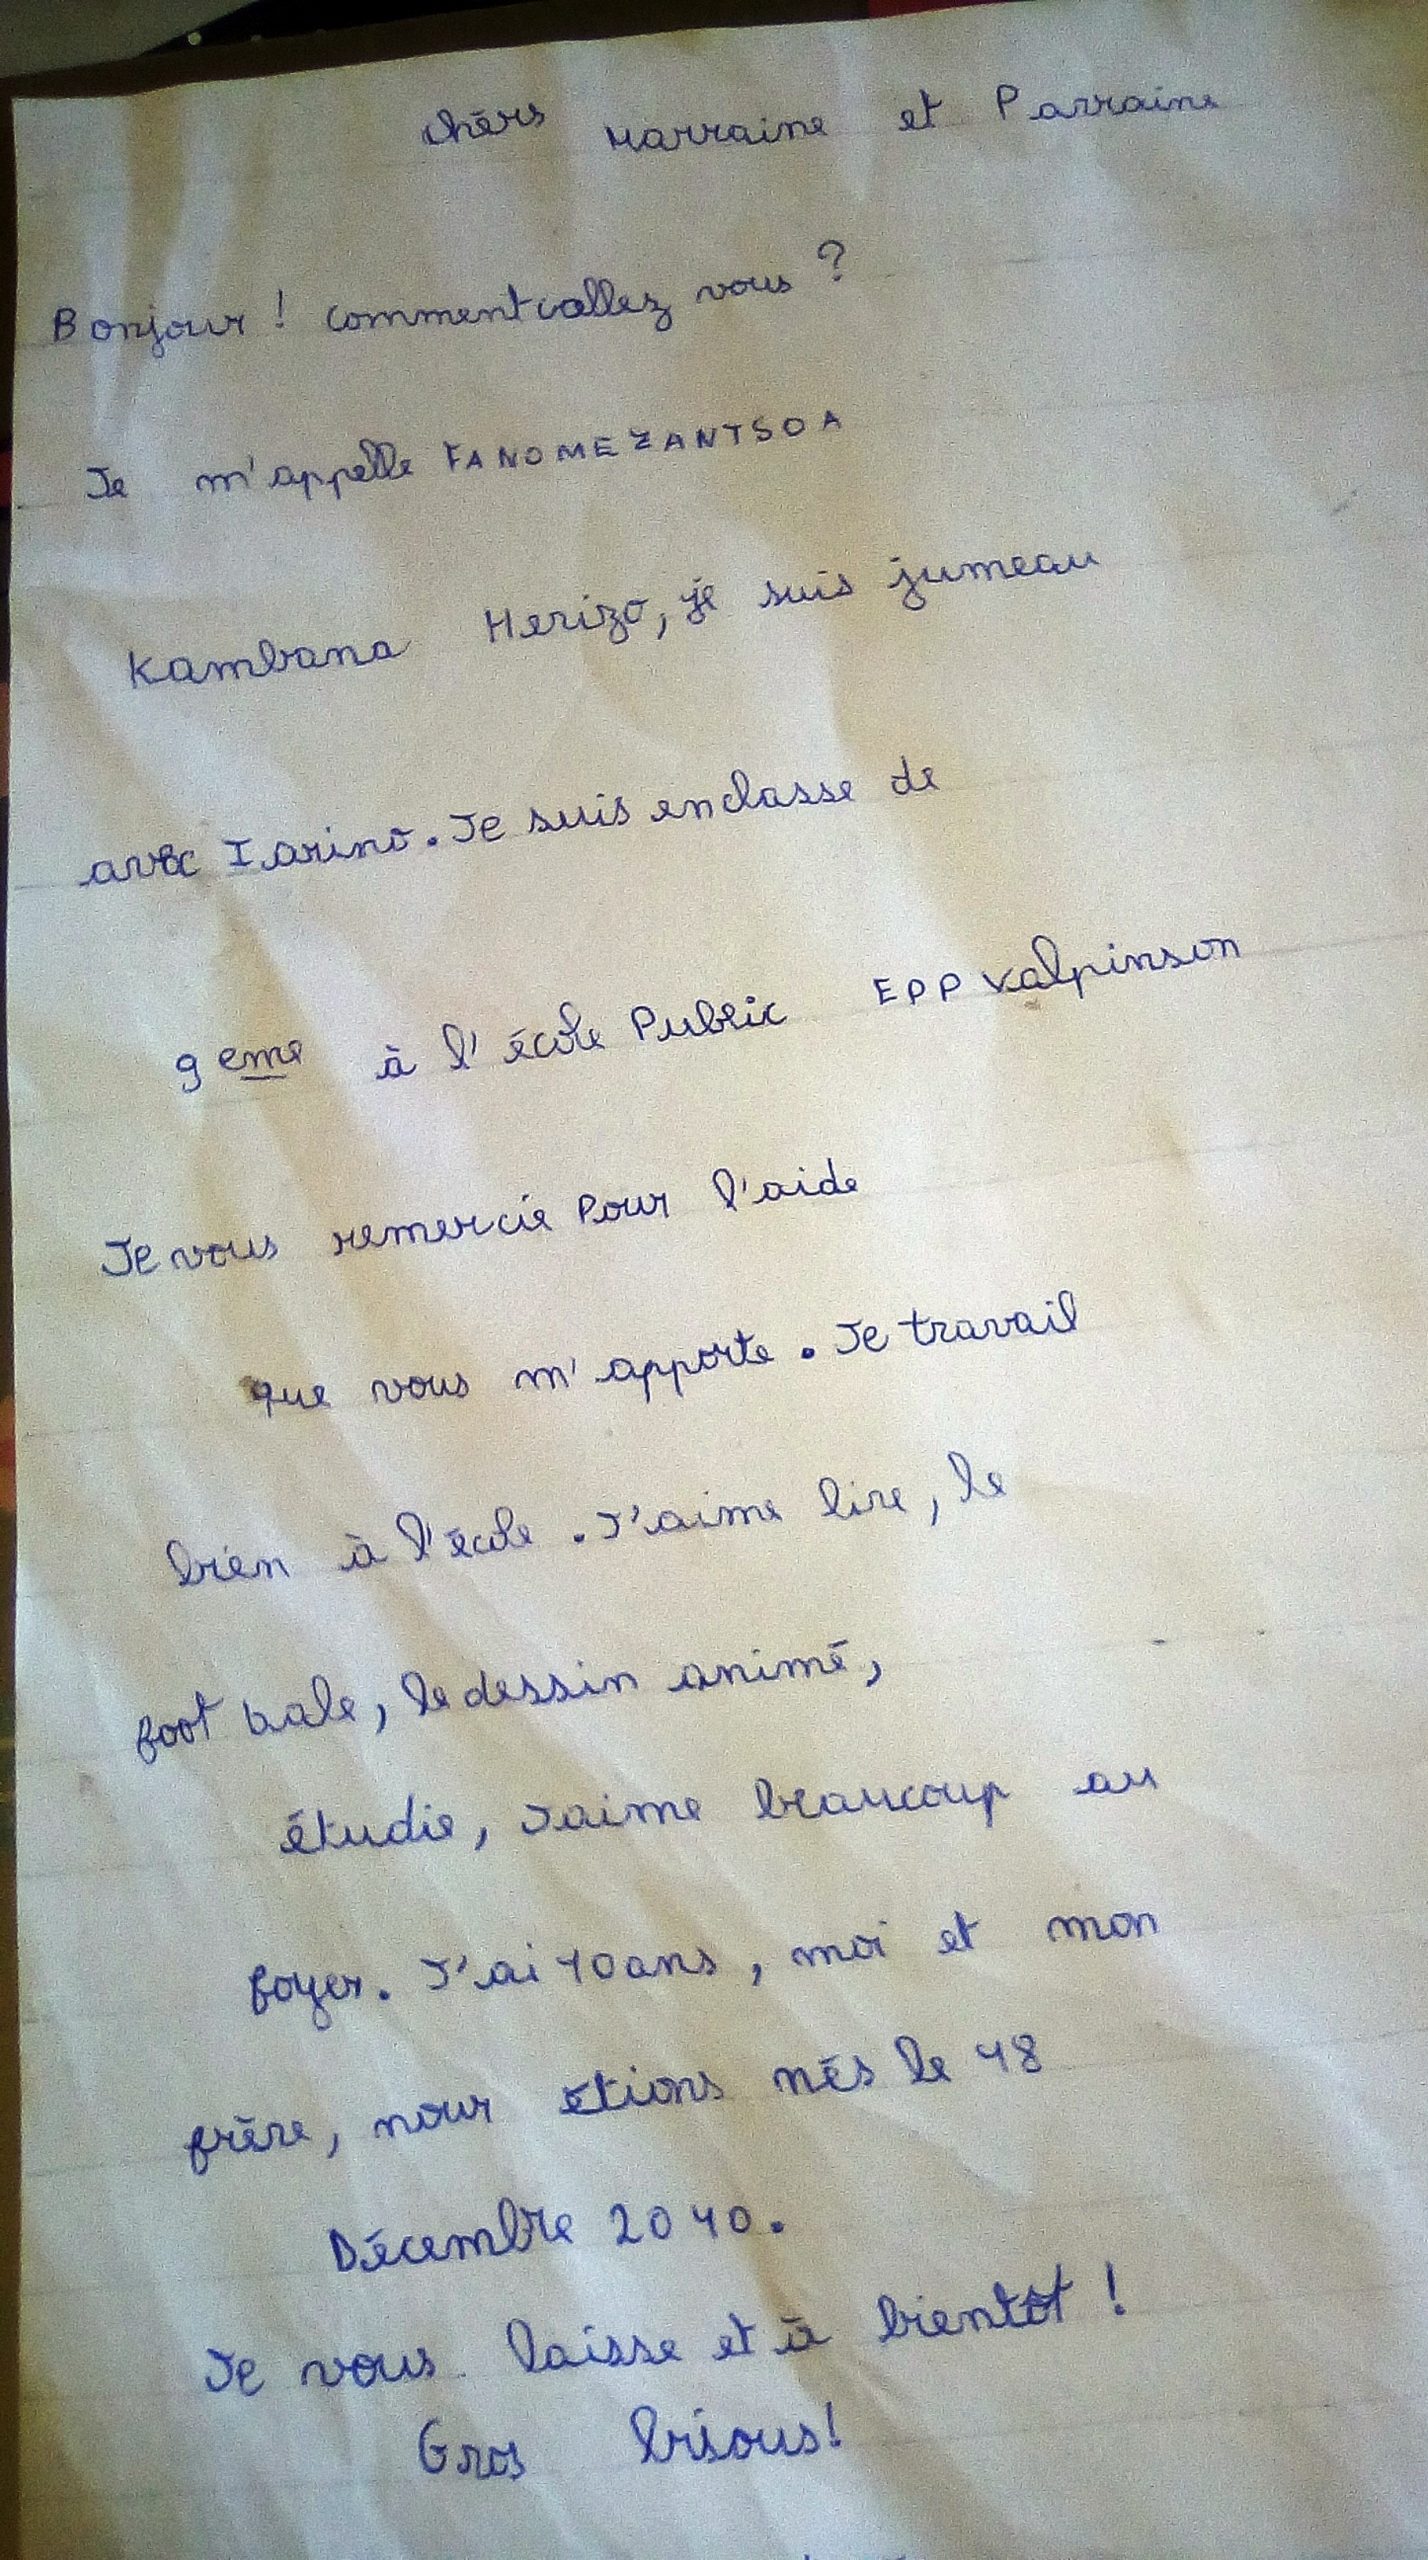 chèrs Marraine et Parraine
Bonjour ! comment allez vous ?
Je m'appelle FANOMEZANTSOA
Kambana Herizo, je suis jumeau
avec Iarino. Je suis en classe de
9eme à l'école Public EPP Valpinson
Je vous remercie Pour l'aide
que vous m'apporte. Je travail
bien à l'école. J'aime lire, le
foot bale, le dessin animé,
étudie, J'aime beaucoup au
foyer. J'ai 10 ans, moi et mon
frère, nour étions nés le 18
Décembre 2010.
Je vous laisse et à bientôt !
Gros bisous!